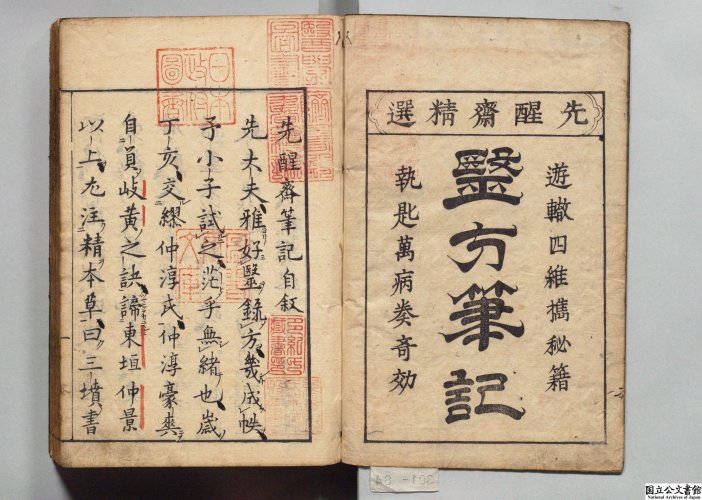 先醒齋精選
遊轍四維攜秘籍
毉方筆記
執匙萬病奏奇効
先醒齋筆記自叙
先大夫雅好毉錄方幾成帙
予小子試之茫乎無緒也歲
丁亥交繆仲淳氏仲淳豪爽
自負岐黄之訣諦東垣仲景
以上尤注精本草曰三墳書
日本
政府
圖書
国立公文書館
National Archives of Japan